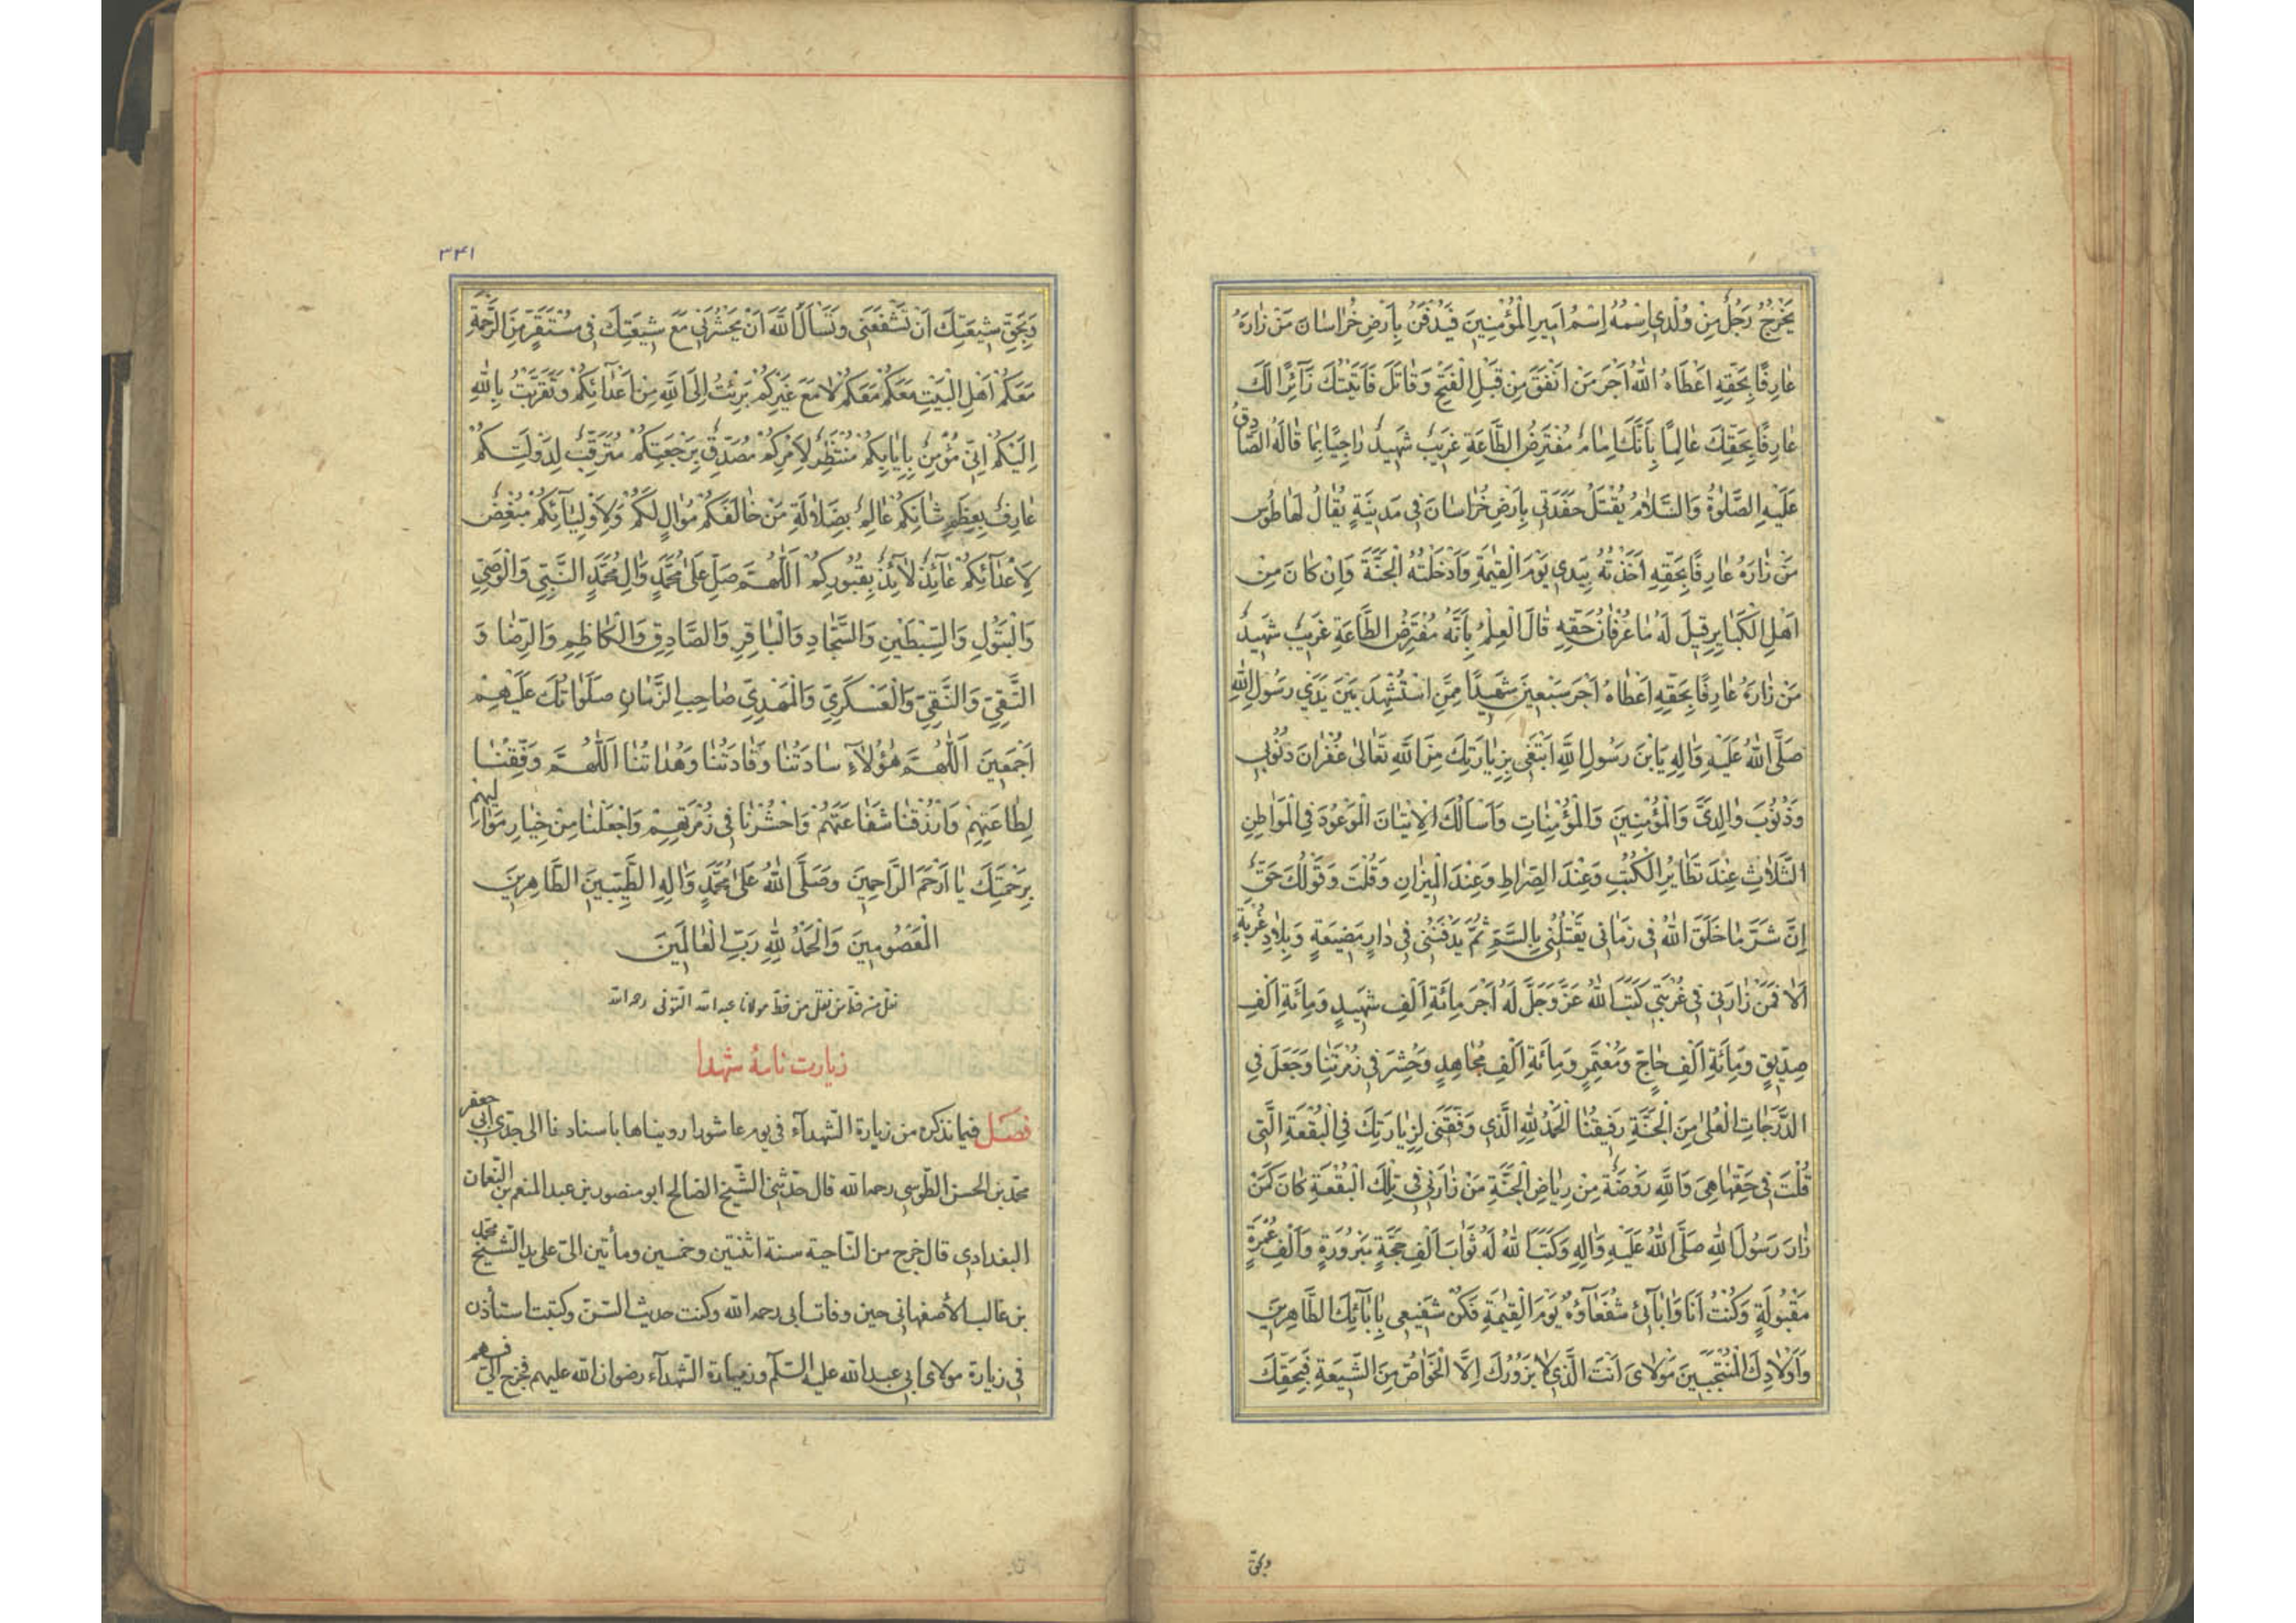 يَخْرُجُ رَجُلٌ مِنْ وُلْدِي اِسْمُهُ اِسْمُ اَمِيرِ الْمُؤْمِنِينَ فَيُدْفَنُ بِاَرْضِ خُرٰاسٰانَ مَنْ زٰارَهُ
عٰارِفًا بِحَقِّهِ اَعْطَاهُ اللّٰهُ اَجْرَ مَنْ اَنْفَقَ مِنْ قَبْلِ الْفَتْحِ وَقٰاتَلَ فَاَتَيْتُكَ زٰآئِرًا لَكَ
عٰارِفًا بِحَقِّكَ عٰالِمًا بِاَنَّكَ اِمٰامٌ مُفْتَرِضُ الطَّاعَةِ غَرِيبٌ شَهِيدٌ رٰاجِيًا بِمٰا قٰالَهُ الصّٰادِقُ
عَلَيْهِ الصَّلٰوةُ وَالسَّلٰامُ يُقْتَلُ حَفَدَتِي بِاَرْضِ خُرٰاسٰانَ فِي مَدِينَةٍ يُقٰالُ لَهٰا طُوسُ
مَنْ زٰارَهُ عٰارِفًا بِحَقِّهِ اَخَذْتُهُ بِيَدِي يَوْمَ الْقِيٰمَةِ وَاَدْخَلْتُهُ الْجَنَّةَ وَاِنْ كٰانَ مِنْ
اَهْلِ الْكَبٰايِرِ قِيلَ لَهُ مٰا عِرْفٰانُ حَقِّهِ قٰالَ الْعِلْمُ بِاَنَّهُ مُفْتَرِضُ الطَّاعَةِ غَرِيبٌ شَهِيدٌ
مَنْ زٰارَهُ عٰارِفًا بِحَقِّهِ اَعْطٰاهُ اَجْرَ سَبْعِينَ شَهِيدًا مِمَّنِ اسْتُشْهِدَ بَيْنَ يَدَيْ رَسُولِ اللّٰهِ
صَلَّى اللّٰهُ عَلَيْهِ وَاٰلِهِ يَابْنَ رَسُولِ اللّٰهِ اَبْتَغِي بِزِيٰارَتِكَ مِنَ اللّٰهِ تَعٰالىٰ غُفْرٰانَ ذُنُوبِي
وَذُنُوبَ وٰالِدَيَّ وَالْمُؤْمِنِينَ وَالْمُؤْمِنٰاتِ وَاَسْاَلُكَ الْاِتْيٰانَ الْمَوْعُودَ فِي الْمَوٰاطِنِ
الثَّلٰاثِ عِنْدَ تَطٰايُرِ الْكُتُبِ وَعِنْدَ الصِّرٰاطِ وَعِنْدَ الْمِيزٰانِ وَقُلْتَ وَقَوْلُكَ حَقٌّ
اِنَّ شَرَّ مٰا خَلَقَ اللّٰهُ فِي زَمٰانِي يَقْتُلُنِي بِالسَّمِّ ثُمَّ يَدْفِنُنِي فِي دٰارِ مَضِيعَةٍ وَبِلٰادِ غُرْبَةٍ
اَلٰا فَمَنْ زٰارَنِي فِي غُرْبَتِي كَتَبَ اللّٰهُ عَزَّ وَجَلَّ لَهُ اَجْرَ مِائَةِ اَلْفِ شَهِيدٍ وَمِائَةِ اَلْفِ
صِدِّيقٍ وَمِائَةِ اَلْفِ حٰاجٍّ وَمُعْتَمِرٍ وَمِائَةِ اَلْفِ مُجٰاهِدٍ وَحُشِرَ فِي زُمْرَتِنٰا وَجُعِلَ فِي
الدَّرَجٰاتِ الْعُلىٰ مِنَ الْجَنَّةِ رَفِيقُنٰا اَلْحَمْدُ لِلّٰهِ الَّذِي وَفَّقَنِي لِزِيٰارَتِكَ فِي الْبُقْعَةِ الَّتِي
قُلْتَ فِي حَقِّهٰا هِيَ وَاللّٰهِ رَوْضَةٌ مِنْ رِيٰاضِ الْجَنَّةِ مَنْ زٰارَنِي فِي تِلْكَ الْبُقْعَةِ كٰانَ كَمَنْ
زٰارَ رَسُولَ اللّٰهِ صَلَّى اللّٰهُ عَلَيْهِ وَاٰلِهِ وَكَتَبَ اللّٰهُ لَهُ ثَوٰابَ اَلْفِ حَجَّةٍ مَبْرُورَةٍ وَاَلْفِ عُمْرَةٍ
مَقْبُولَةٍ وَكُنْتُ اَنَا وَاٰبٰآئِي شُفَعٰآؤُهُ يَوْمَ الْقِيٰمَةِ فَكُنْ شَفِيعِي بِاٰبٰآئِكَ الطّٰاهِرِينَ
وَاَوْلٰادِكَ الْمُنْتَجَبِينَ مَوْلٰايَ اَنْتَ الَّذِي لٰا يَزُورُكَ اِلَّا الْخَوٰاصُّ مِنَ الشِّيعَةِ فَبِحَقِّكَ
وبحق
٣٤١
وَبِحَقِّ شِيعَتِكَ اَنْ تَشْفَعَنِي وَتَسْاَلَ اللّٰهَ اَنْ يَحْشُرَنِي مَعَ شِيعَتِكَ فِي مُسْتَقَرٍّ مِنَ الرَّحْمَةِ
مَعَكُمْ اَهْلَ الْبَيْتِ مَعَكُمْ مَعَكُمْ لٰا مَعَ غَيْرِكُمْ بَرِئْتُ اِلَى اللّٰهِ مِنْ اَعْدٰائِكُمْ وَتَقَرَّبْتُ بِاللّٰهِ
اِلَيْكُمْ اِنِّي مُؤْمِنٌ بِاِيٰابِكُمْ مُنْتَظِرٌ لِاَمْرِكُمْ مُصَدِّقٌ بِرَجْعَتِكُمْ مُتَرَقِّبٌ لِدَوْلَتِكُمْ
عٰارِفٌ بِعِظَمِ شٰانِكُمْ عٰالِمٌ بِضَلٰالَةِ مَنْ خٰالَفَكُمْ مُوٰالٍ لَكُمْ وَلِاَوْلِيٰآئِكُمْ مُبْغِضٌ
لِاَعْدٰآئِكُمْ عٰآئِذٌ لٰآئِذٌ بِقُبُورِكُمْ اَللّٰهُمَّ صَلِّ عَلىٰ مُحَمَّدٍ وَاٰلِ مُحَمَّدٍ النَّبِيِّ وَالْوَصِيِّ
وَالْبَتُولِ وَالسِّبْطَيْنِ وَالسَّجّٰادِ وَالْبٰاقِرِ وَالصّٰادِقِ وَالْكٰاظِمِ وَالرِّضٰا وَ
التَّقِيِّ وَالنَّقِيِّ وَالْعَسْكَرِيِّ وَالْمَهْدِيِّ صٰاحِبِ الزَّمٰانِ صَلَوٰاتُكَ عَلَيْهِمْ
اَجْمَعِينَ اَللّٰهُمَّ هٰؤُلٰآءِ سٰادَتُنٰا وَقٰادَتُنٰا وَهُدٰاتُنٰا اَللّٰهُمَّ وَفِّقْنٰا
لِطٰاعَتِهِمْ وَارْزُقْنٰا شَفٰاعَتَهُمْ وَاحْشُرْنٰا فِي زُمْرَتِهِمْ وَاجْعَلْنٰا مِنْ خِيٰارِ مَوٰالِيهِمْ
بِرَحْمَتِكَ يٰا اَرْحَمَ الرّٰاحِمِينَ وَصَلَّى اللّٰهُ عَلىٰ مُحَمَّدٍ وَاٰلِهِ الطَّيِّبِينَ الطّٰاهِرِينَ
الْمَعْصُومِينَ وَالْحَمْدُ لِلّٰهِ رَبِّ الْعٰالَمِينَ
نقل من خط من نقل من خط مولانا عبد الله التونى رحمه الله
زيارت نامهٔ شهدا
فصل فيما نذكره من زيارة الشهدآء فى يوم عاشورا رويناها باسنادنا الى جدى ابى جعفر
محمد بن الحسن الطوسى رحمه الله قال حدثنى الشيخ الصالح ابو منصور بن عبد المنعم بن النعمان
البغدادى قال خرج من الناحية سنة اثنتين وخمسين ومأتين الى على يد الشيخ محمد
بن غالب الأصفهانى حين وفات ابى رحمه الله وكنت حديث السن وكتبت استأذن
فى زيارة مولاى ابى عبد الله عليه السلام وزيارة الشهدآء رضوان الله عليهم فخرج الىّ